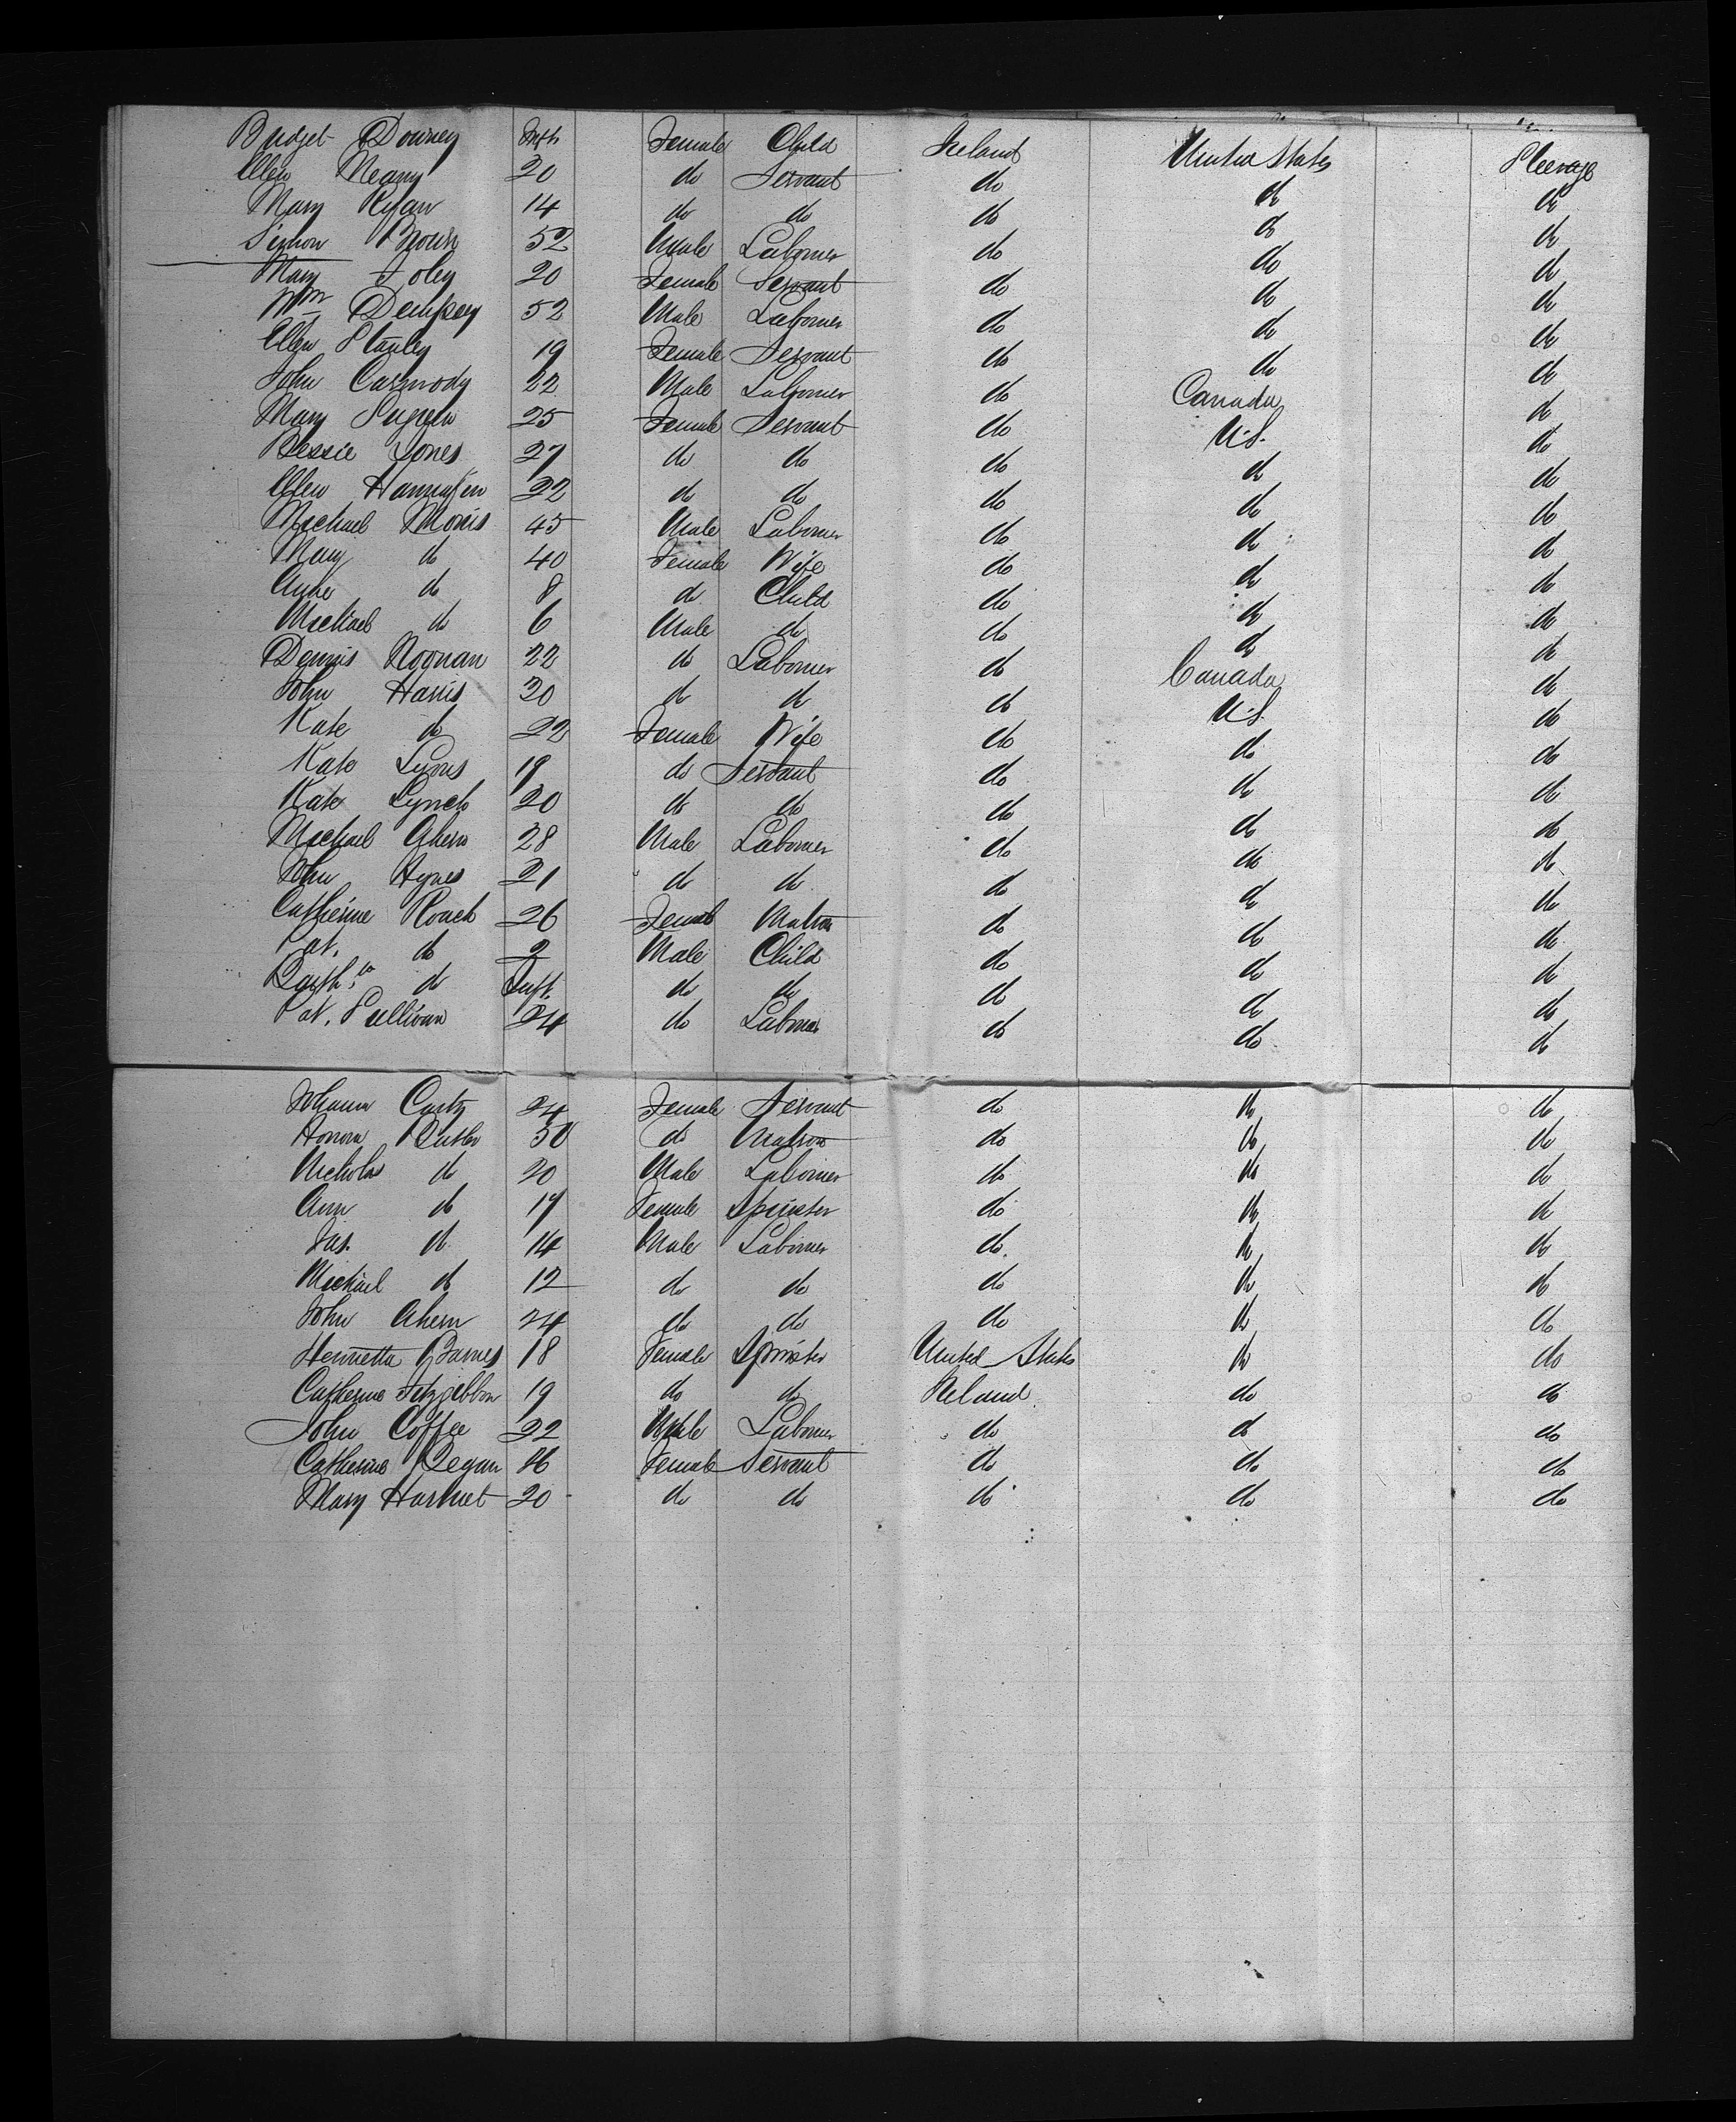 Bridget Downey Inft Female Child Ireland United States Steerage
Ellen Meany 20 do Servant do do do
Mary Ryan 14 do do do do do
Simon 52 Male Laborer do do do
Mary Foley 20 Female Servant do do do
Wm Dempsey 52 Male Laborer do do do
Ellen Stanley 19 Female Servant do do do
John Carmody 22 Male Laborer do Canada do
Mary 25 Female Servant do U.S. do
Bessie Jones 27 do do do do do
Ellen Hannafin 22 do do do do do
Michael Morris 45 Male Laborer do do do
Mary do 40 Female Wife do do do
Anne do 8 do Child do do do
Michael do 6 Male do do do do
Dennis Noonan 22 do Laborer do Canada do
John Harris 30 do do do U.S. do
Kate do 22 Female Wife do do do
Kate Lyons 19 do Servant do do do
Kate Lynch 20 do do do do do
Michael Ahern 28 Male Laborer do do do
John Hynes 21 do do do do do
Catherine Roach 26 Female Matron do do do
Pat. do 2 Male Child do do do
Barthw do Inft. do do do do do
Pat. Sullivan 24 do Laborer do do do
Johanna Carty 24 Female Servant do do do
Honora Butler 50 do Matron do do do
Nicholas do 20 Male Laborer do do do
Ann do 17 Female Spinster do do do
Jas. do 14 Male Laborer do do do
Michael do 12 do do do do do
John Ahern 24 do do do do do
Henrietta Barnes 18 Female Spinster United States do do
Catherine Fitzgibbon 19 do do Ireland do do
John Coffee 22 Male Laborer do do do
Catherine Regan 16 Female Servant do do do
Mary Harnet 20 do do do do do